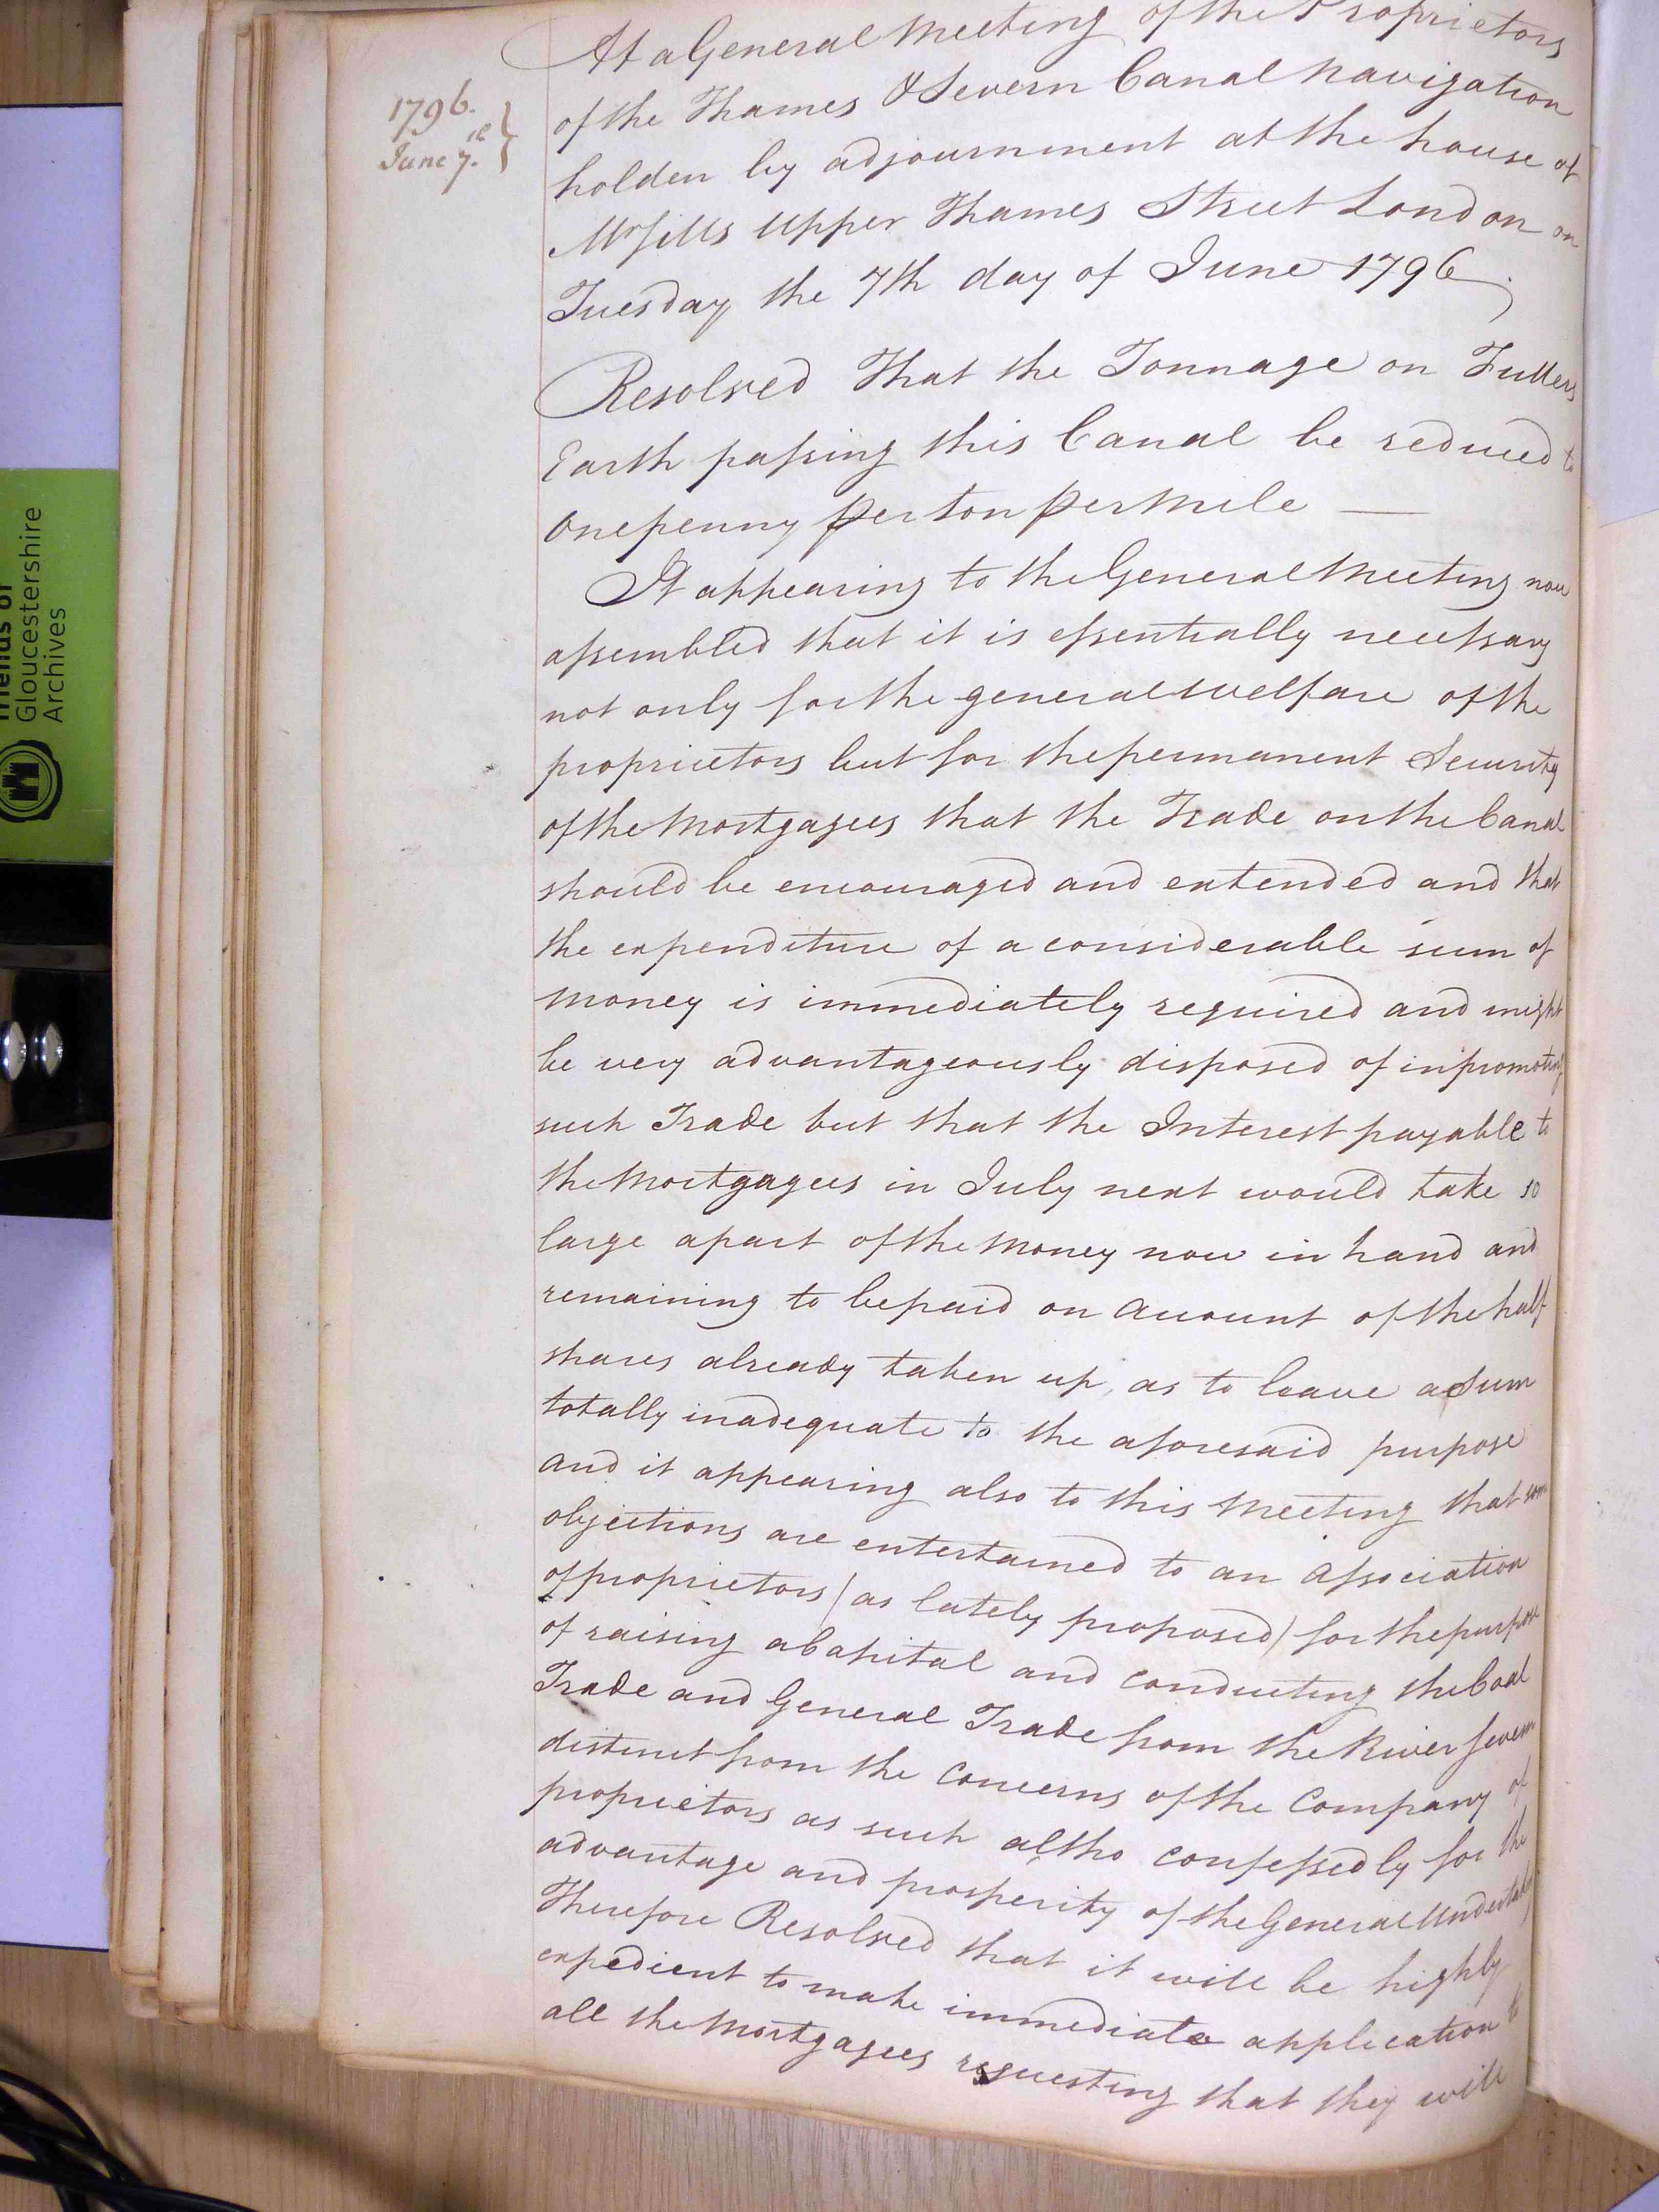 1796.
June 7.th
At a General Meeting of the Proprietors
of the Thames & Severn Canal Navigation
holden by adjournment at the house of
Upper Thames Street London on
Tuesday the 7th day of June 1796.
Resolved That the Tonnage on Fullers
Earth passing this Canal be reduced to
one penny per ton per Mile —
It appearing to the General Meeting now
assembled that it is essentially necessary
not only for the general welfare of the
proprietors but for the permanent Security
of the Mortgagees that the Trade on the Canal
should be encouraged and extended and that
the expenditure of a considerable sum of
money is immediately required and might
be very advantageously disposed of in promoting
such Trade but that the Interest payable to
the Mortgagees in July next would take so
large a part of the Money now in hand and
remaining to be paid on account of the half
shares already taken up, as to leave a Sum
totally inadequate to the aforesaid purpose
and it appearing also to this Meeting that some
objections are entertained to an association
of proprietors (as lately proposed) for the purpose
of raising a Capital and conducting the Coal
Trade and General Trade from the River Severn
distinct from the Concerns of the Company of
proprietors as such altho confessedly for the
advantage and prosperity of the General Undertaking
Therefore Resolved that it will be highly
expedient to make immediate application to
all the Mortgagees requesting that they will
Friends of
Gloucestershire
Archives